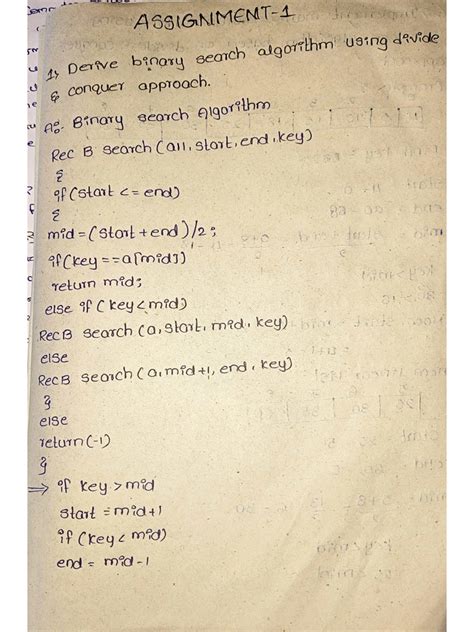 ASSIGNMENT-1
1) Derive binary search algorithm using divide
& conquer approach.
As:- Binary search Algorithm
Rec B search (a11, start, end, key)
{
if (start <= end)
{
mid = (start + end)/2;
if (key == a[mid])
return mid;
else if (key < mid)
RecB search (a, start, mid, key)
else
RecB search (a, mid+1, end, key)
}
else
return (-1)
}
⇒ if key > mid
start = mid+1
if (key < mid)
end = mid-1